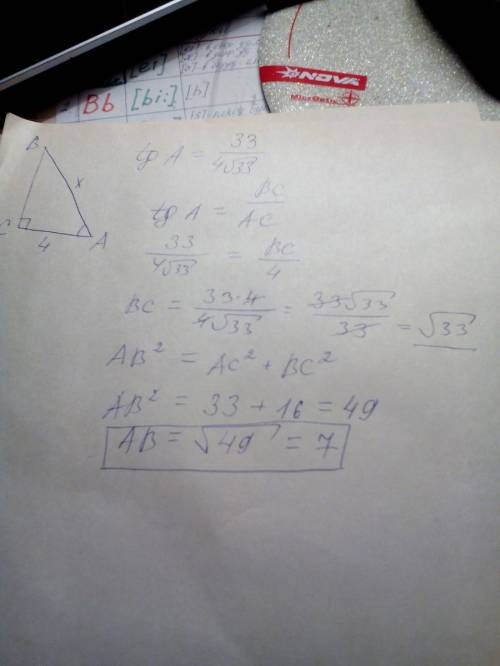 [ei]
Bb [bi:] [b]
NOVA
MicrOptic
B
x
C
4
A
tg A = 33/4√33
tg A = BC/AC
33/4√33 = BC/4
BC = 33·4/4√33 = 33√33/33 = √33
AB² = AC² + BC²
AB² = 33 + 16 = 49
AB = √49 = 7